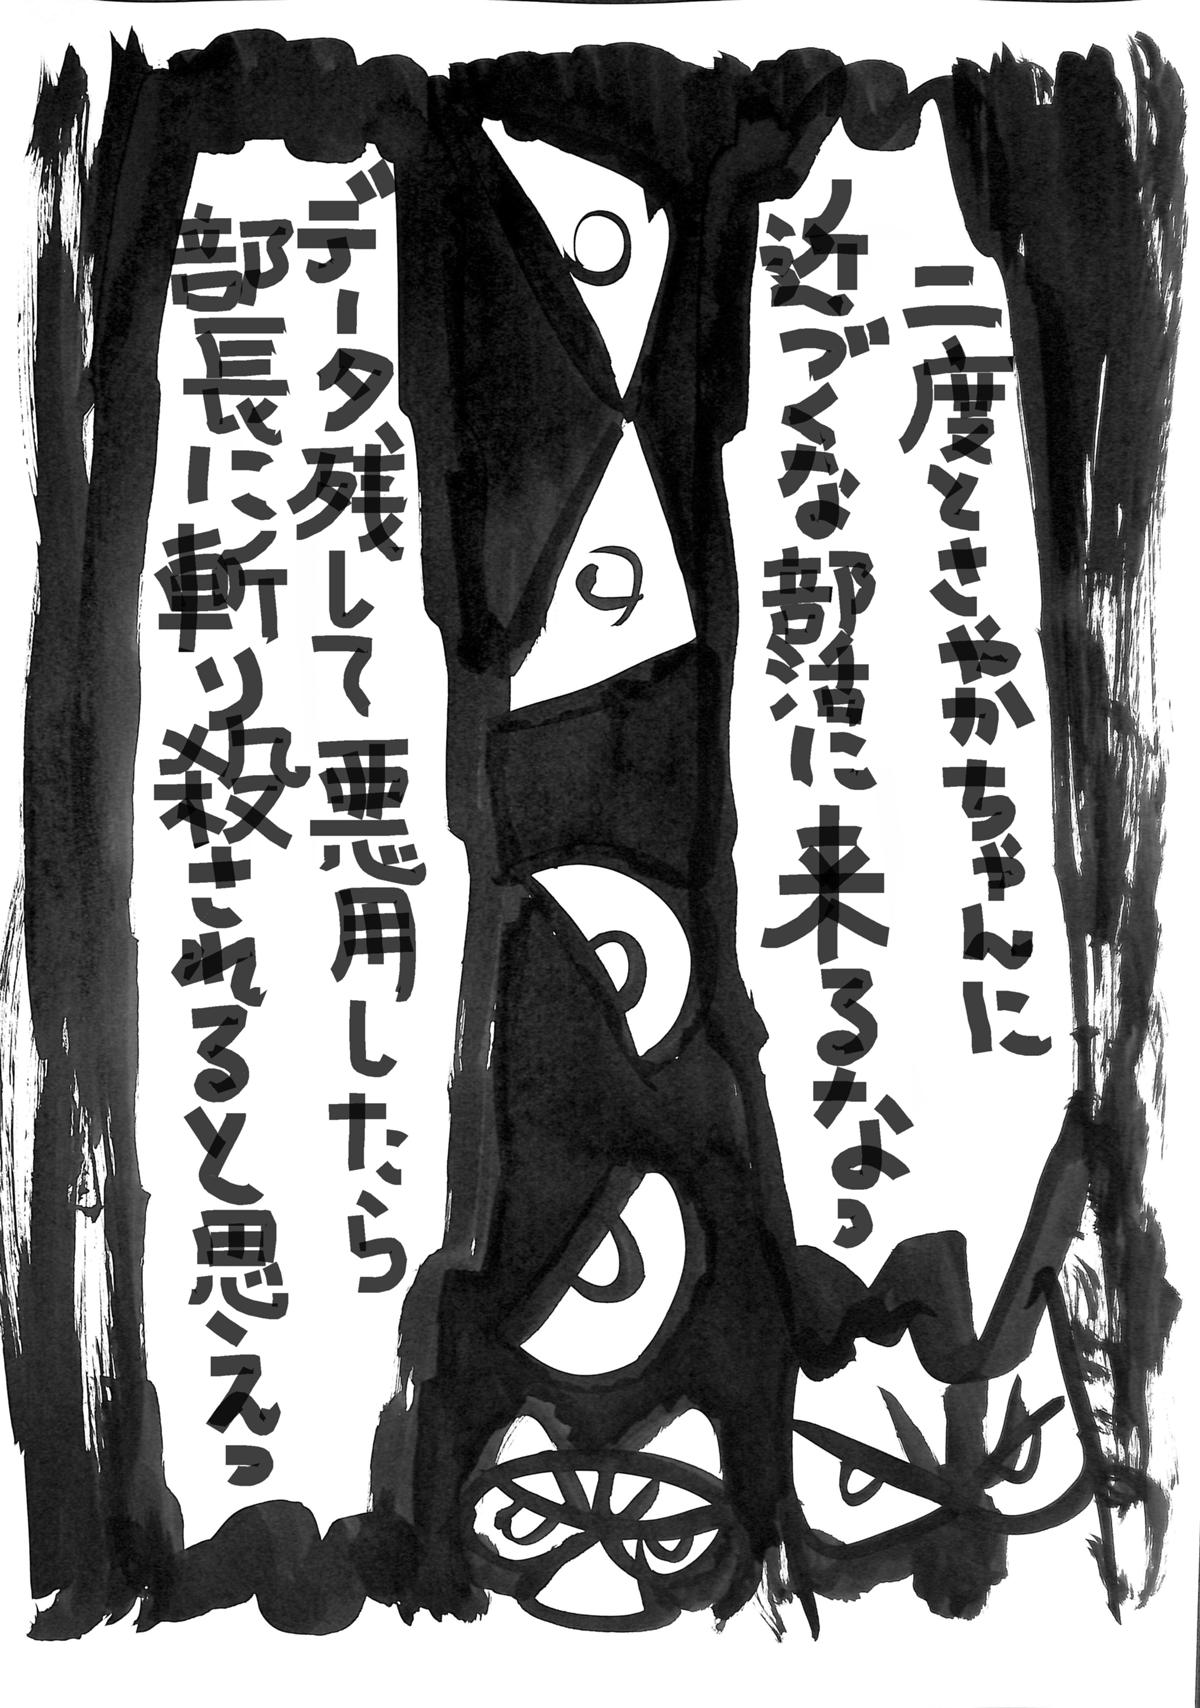 二度とさやかちゃんに
近づくな部活に来るなっ
データ残して悪用したら
部長に斬り殺されると思えっ